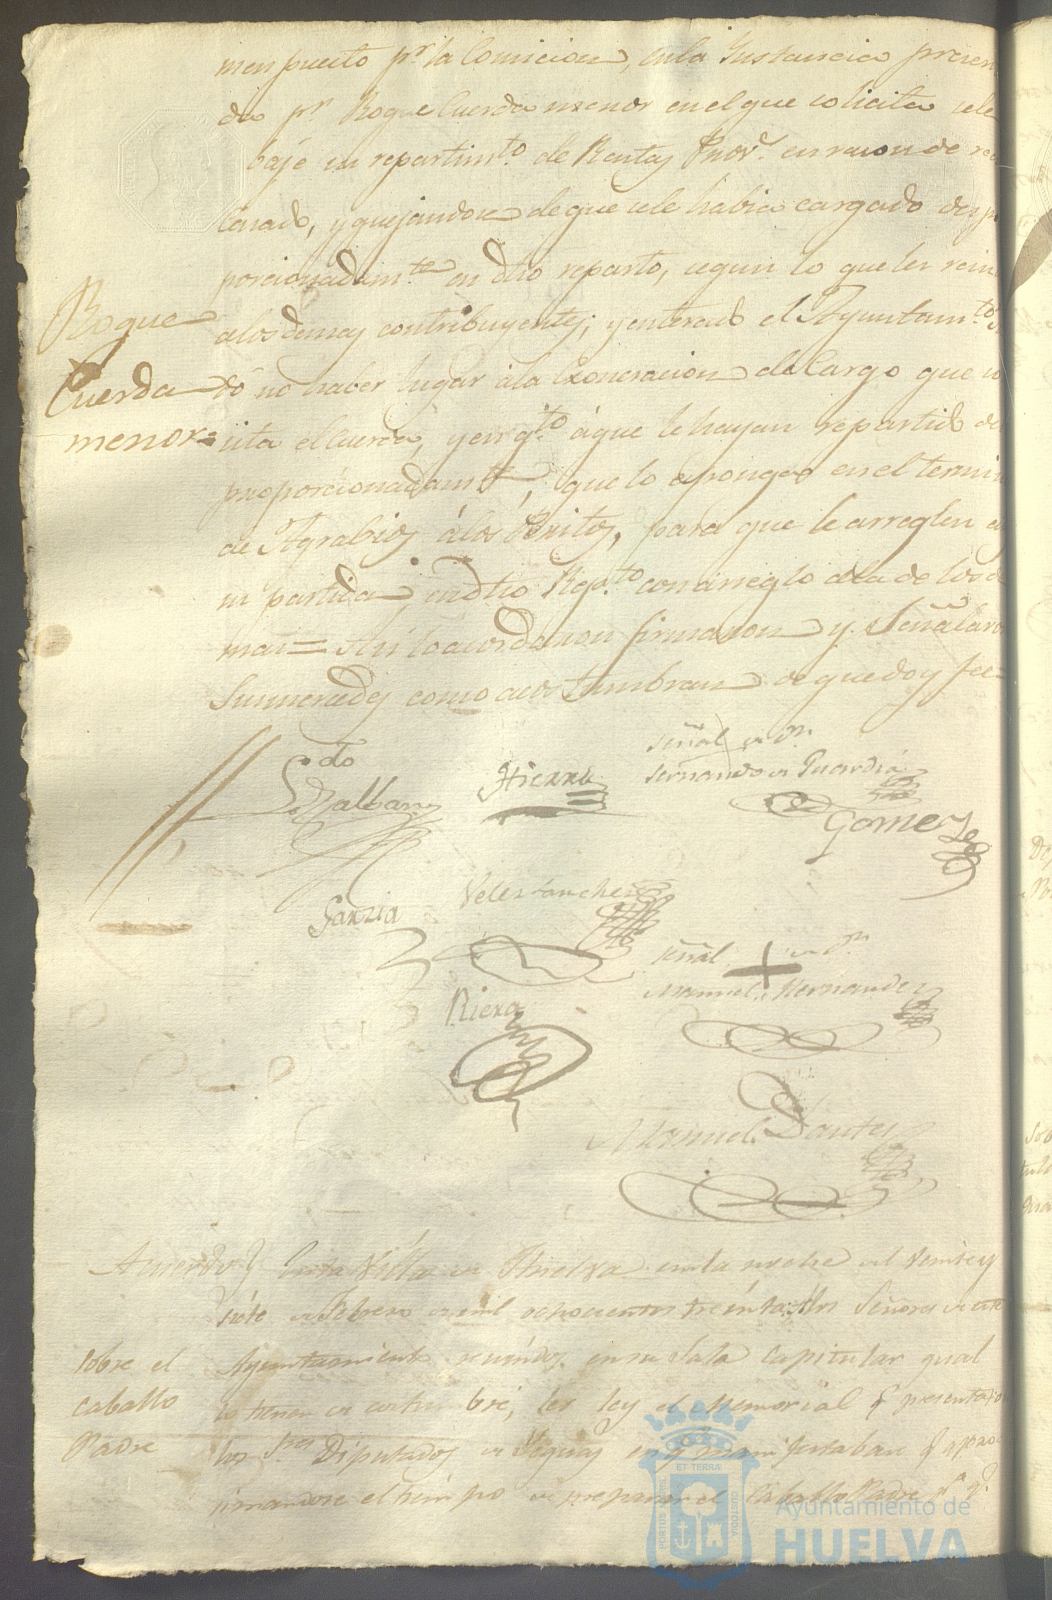 men puesto pr. la Comicion, en la Instancia presen
da pr. Roque Cuerda menor en el que solicita sele
baje su repartimto. de Rentas Prov.s en razon de
y quejandose de que sele habia cargado
porcionadamte. en dho reparto, segun lo que les
Roque
Cuerda
menor=
alos demas contribuyentes; y enterado el Ayuntamto.
dó no haber lugar ála Exoneracion del Cargo que
cita el Cuerda, y en qto. áque le hayan repartido de
proporcionadamte., que lo esponga en el termin
de Agrabios álos Peritos, para que le arreglen
su partida en dho Repto. con arreglo ala de los de
mas= Asi lo acordaron firmaron y Señalaron
Sus mercedes como acostumbran de que doy fee=
Ldo.
Hierro
Señal de Dn.
Fernando de Guardia
Gomez
Garzia
Velez Sanchez
Señal + de Dn.
Manuel Hernandez
Riera
Manuel Dantes
Acuerdo
sobre el
caballo
Padre
En la Villa de Huelva en la noche del veinte y
siete de Febrero de mil ochocientos treinta: Los Señores de este
Ayuntamiento reunidos en su Sala capitular qual
lo tienen de costumbre, les ley el Memorial q. presentado
los Sres. Diputados de Yeguas en q. manifestaban q. aproc
simandose el tiempo de preparar el Caballo Padre pa. q.
PORTUS MARIS
ET TERRAE
CUSTODIA
Ayuntamiento de
HUELVA